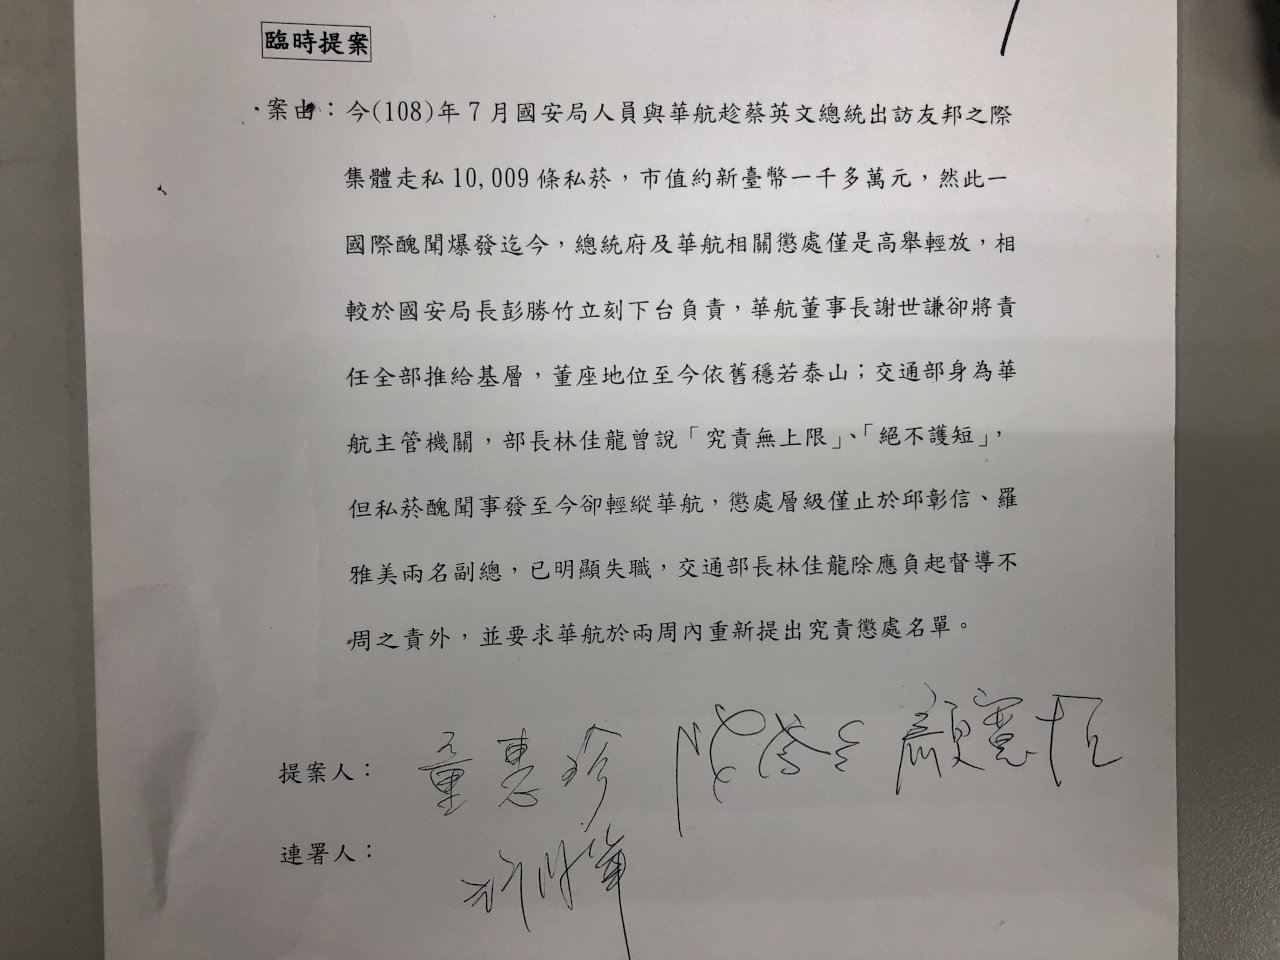 臨時提案
案由：今(108)年7月國安局人員與華航趁蔡英文總統出訪友邦之際
集體走私10,009條私菸，市值約新臺幣一千多萬元，然此一
國際醜聞爆發迄今，總統府及華航相關懲處僅是高舉輕放，相
較於國安局長彭勝竹立刻下台負責，華航董事長謝世謙卻將責
任全部推給基層，董座地位至今依舊穩若泰山；交通部身為華
航主管機關，部長林佳龍曾說「究責無上限」、「絕不護短」，
但私菸醜聞事發至今卻輕縱華航，懲處層級僅止於邱彰信、羅
雅美兩名副總，已明顯失職，交通部長林佳龍除應負起督導不
周之責外，並要求華航於兩周內重新提出究責懲處名單。
提案人：童惠珍 顏寬恒
連署人：